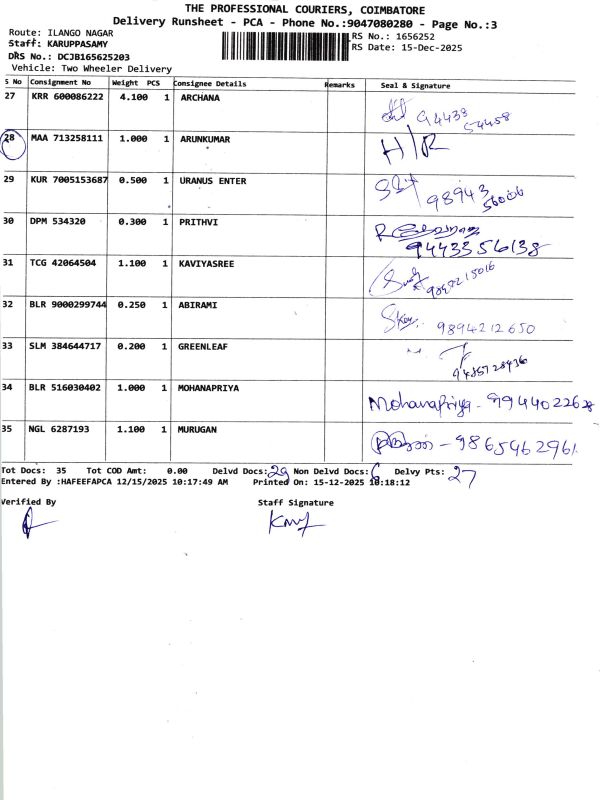 THE PROFESSIONAL COURIERS, COIMBATORE
Delivery Runsheet - PCA - Phone No.:9047080280 - Page No.:3
Route: ILANGO NAGAR RS No.: 1656252
Staff: KARUPPASAMY RS Date: 15-Dec-2025
DRS No.: DCJB165625203
Vehicle: Two Wheeler Delivery
S No Consignment No Weight PCS Consignee Details Remarks Seal & Signature
27 KRR 600086222 4.100 1 ARCHANA 94438 54458
28 MAA 713258111 1.000 1 ARUNKUMAR H/R
29 KUR 7005153687 0.500 1 URANUS ENTER 98943 56006
30 DPM 534320 0.300 1 PRITHVI
9443356138
31 TCG 42064504 1.100 1 KAVIYASREE
32 BLR 9000299744 0.250 1 ABIRAMI 9894212650
33 SLM 384644717 0.200 1 GREENLEAF
34 BLR 516030402 1.000 1 MOHANAPRIYA Mohanapriya - 9944022628
35 NGL 6287193 1.100 1 MURUGAN - 9865462961
Tot Docs: 35 Tot COD Amt: 0.00 Delvd Docs: 29 Non Delvd Docs: 6 Delvy Pts: 27
Entered By :HAFEEFAPCA 12/15/2025 10:17:49 AM Printed On: 15-12-2025 10:18:12
Verified By Staff Signature